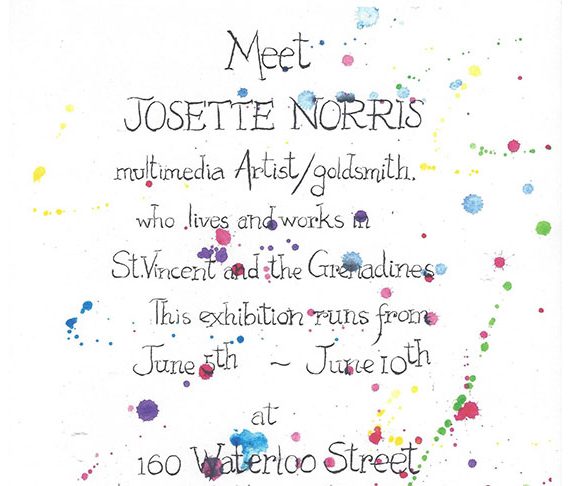 Meet
JOSETTE NORRIS
multimedia Artist/goldsmith.
who lives and works in
St.Vincent and the Grenadines
This exhibition runs from
June 5th ~ June 10th
at
160 Waterloo Street